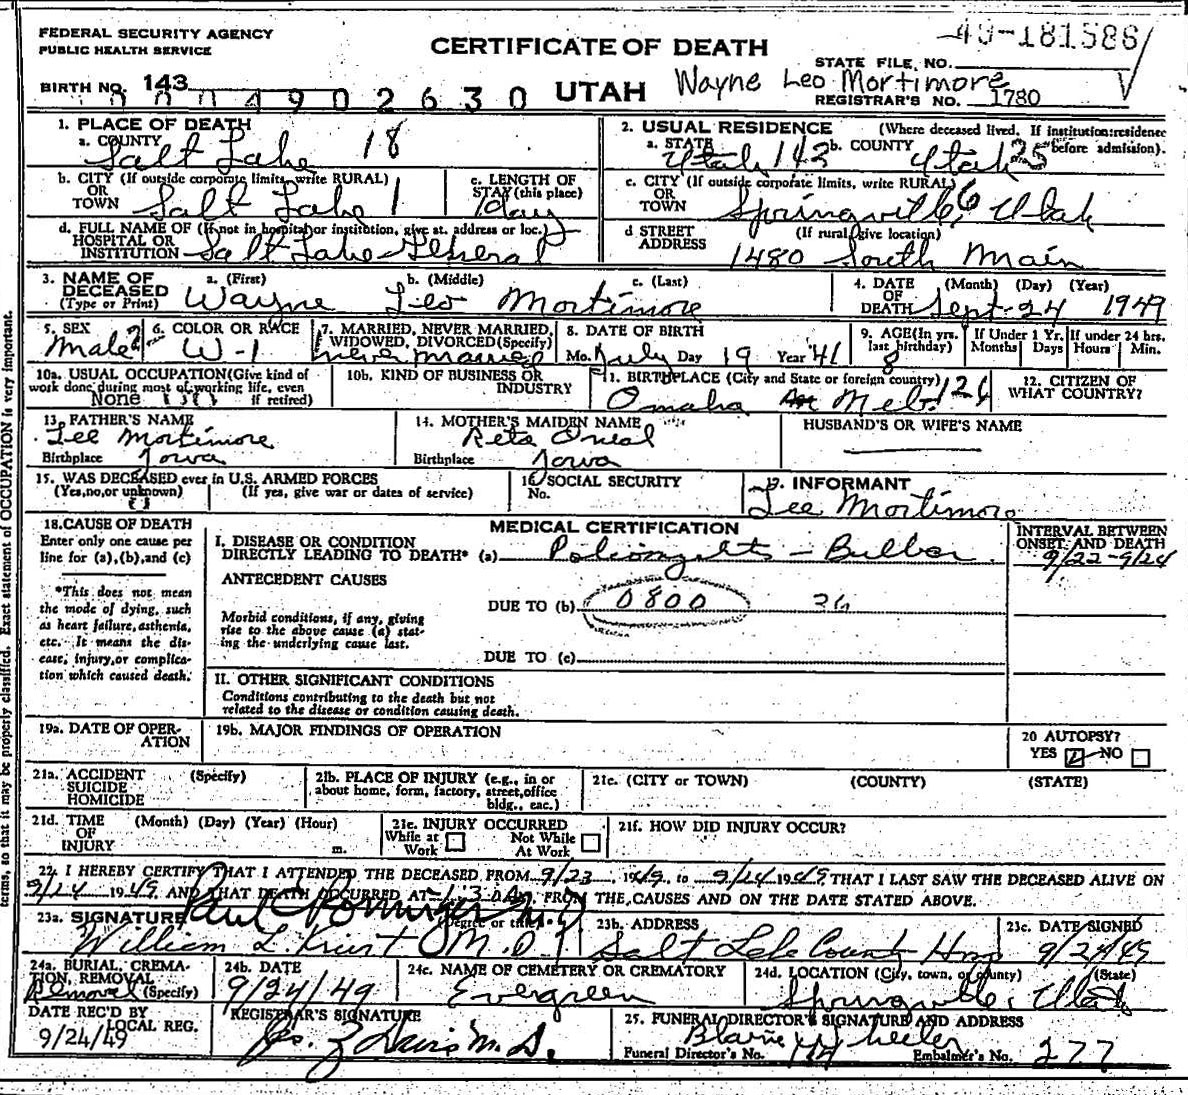 FEDERAL SECURITY AGENCY
PUBLIC HEALTH SERVICE
CERTIFICATE OF DEATH
49-181586
STATE FILE NO.
BIRTH NO. 143
0004902630
UTAH
Wayne Leo Mortimore
REGISTRAR'S NO. 1780
1. PLACE OF DEATH
a. COUNTY
Salt Lake 18
2. USUAL RESIDENCE (Where deceased lived. If institution: residence before admission).
a. STATE Utah 143 b. COUNTY Utah 25
b. CITY (If outside corporate limits, write RURAL)
OR
TOWN Salt Lake 1
c. LENGTH OF
STAY (this place)
1 day
c. CITY (If outside corporate limits, write RURAL)
OR
TOWN Springville, 6 Utah
d. FULL NAME OF (If not in hospital or institution, give st. address or loc.)
HOSPITAL OR
INSTITUTION Salt Lake General
d STREET (If rural, give location)
ADDRESS 1480 South Main
3. NAME OF a. (First) b. (Middle) c. (Last)
DECEASED
(Type or Print) Wayne Leo Mortimore
4. DATE (Month) (Day) (Year)
OF
DEATH Sept-24 1949
5. SEX
Male
6. COLOR OR RACE
W-1
7. MARRIED, NEVER MARRIED,
WIDOWED, DIVORCED (Specify)
never married
8. DATE OF BIRTH
Mo. July Day 19 Year '41
9. AGE (In yrs.
last birthday)
8
If Under 1 Yr.
Months Days
If under 24 hrs.
Hours Min.
10a. USUAL OCCUPATION (Give kind of
work done during most of working life, even
if retired)
None
10b. KIND OF BUSINESS OR
INDUSTRY
11. BIRTHPLACE (City and State or foreign country)
Omaha Neb. 126
12. CITIZEN OF
WHAT COUNTRY?
13. FATHER'S NAME
Lee Mortimore
Birthplace Iowa
14. MOTHER'S MAIDEN NAME
Reta Oneal
Birthplace Iowa
HUSBAND'S OR WIFE'S NAME
15. WAS DECEASED ever in U.S. ARMED FORCES
(Yes, no, or unknown) (If yes, give war or dates of service)
16. SOCIAL SECURITY
No.
17. INFORMANT
Lee Mortimore
18. CAUSE OF DEATH
Enter only one cause per
line for (a), (b), and (c)
*This does not mean
the mode of dying, such
as heart failure, asthenia,
etc. It means the dis-
ease, injury, or complica-
tion which caused death.
MEDICAL CERTIFICATION
I. DISEASE OR CONDITION
DIRECTLY LEADING TO DEATH* (a) Poliomyelitis - Bulbar
ANTECEDENT CAUSES
DUE TO (b) 0800 26
Morbid conditions, if any, giving
rise to the above cause (a) stat-
ing the underlying cause last.
DUE TO (c)
II. OTHER SIGNIFICANT CONDITIONS
Conditions contributing to the death but not
related to the disease or condition causing death.
INTERVAL BETWEEN
ONSET AND DEATH
9/22-9/24
19a. DATE OF OPER-
ATION
19b. MAJOR FINDINGS OF OPERATION
20 AUTOPSY?
YES NO
21a. ACCIDENT (Specify)
SUICIDE
HOMICIDE
21b. PLACE OF INJURY (e.g., in or
about home, form, factory, street, office
bldg., eac.)
21c. (CITY or TOWN) (COUNTY) (STATE)
21d. TIME (Month) (Day) (Year) (Hour)
OF
INJURY m.
21e. INJURY OCCURRED
While at Work Not While At Work
21f. HOW DID INJURY OCCUR?
22. I HEREBY CERTIFY THAT I ATTENDED THE DECEASED FROM 9/23 1949, to 9/24 1949, THAT I LAST SAW THE DECEASED ALIVE ON
9/24 1949 AND THAT DEATH OCCURRED AT FROM THE CAUSES AND ON THE DATE STATED ABOVE.
23a. SIGNATURE Paul M.D.
(Degree or title)
William L. M.D.
23b. ADDRESS
Salt Lake County Hosp
23c. DATE SIGNED
9/24/49
24a. BURIAL, CREMA-
TION, REMOVAL
Removal (Specify)
24b. DATE
9/24/49
24c. NAME OF CEMETERY OR CREMATORY
Evergreen
24d. LOCATION (City, town, or county) (State)
Springville, Utah
DATE REC'D BY
LOCAL REG.
9/24/49
REGISTRAR'S SIGNATURE
M. D.
25. FUNERAL DIRECTOR'S SIGNATURE AND ADDRESS
Blaine Wheeler
Funeral Director's No. Embalmer's No. 277
terms, so that it may be properly classified. Exact statement of OCCUPATION is very important.